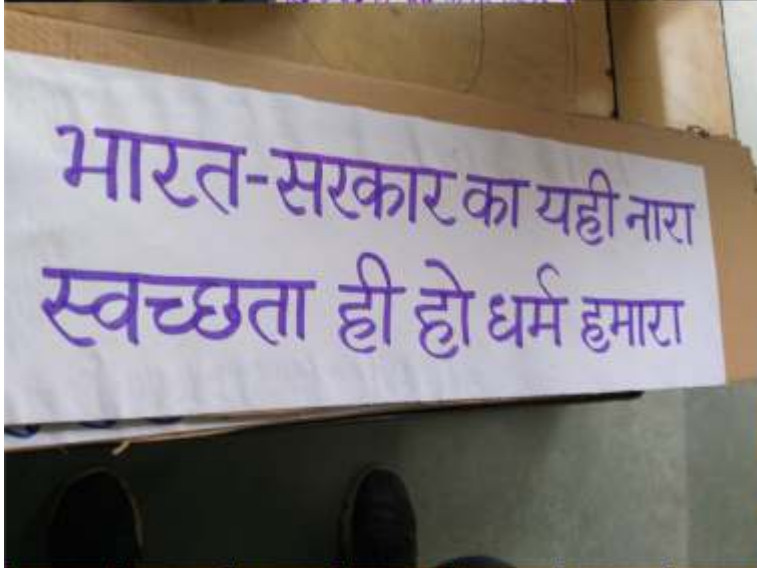 भारत-सरकार का यही नारा
स्वच्छता ही हो धर्म हमारा